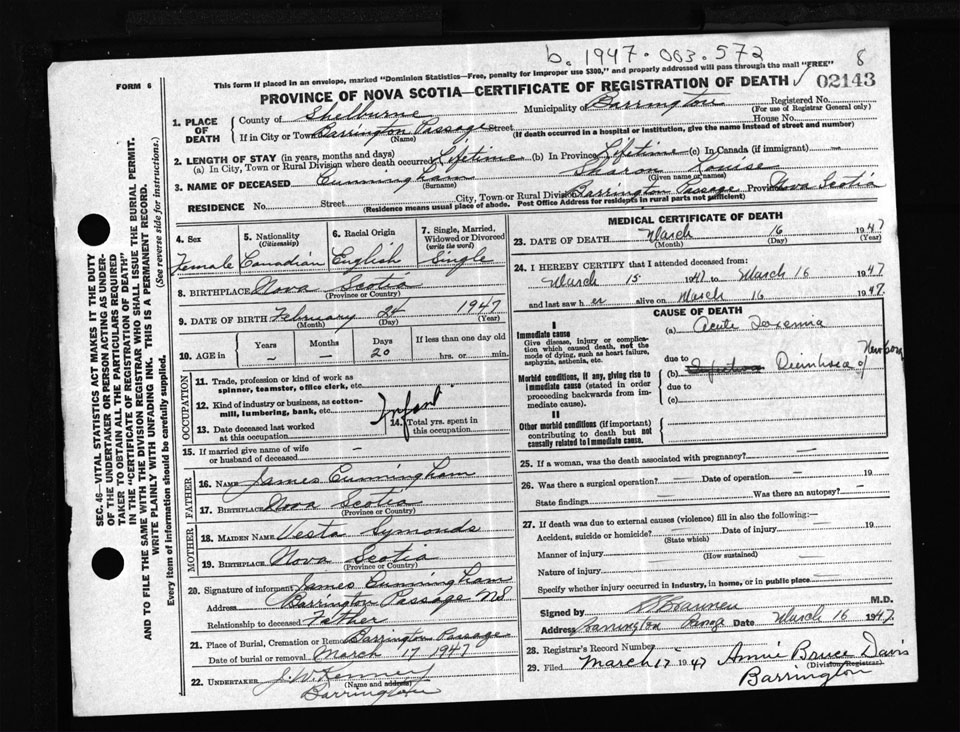 b. 1947-003.572
8
FORM 6
This form if placed in an envelope, marked "Dominion Statistics—Free, penalty for improper use $300," and properly addressed will pass through the mail "FREE"
PROVINCE OF NOVA SCOTIA—CERTIFICATE OF REGISTRATION OF DEATH
02143
1. PLACE OF DEATH
County of Shelburne Municipality of Barrington Registered No.
(For use of Registrar General only)
If in City or Town Barrington Passage Street House No.
(Name) (If death occurred in a hospital or institution, give the name instead of street and number)
2. LENGTH OF STAY (in years, months and days)
(a) In City, Town or Rural Division where death occurred Lifetime (b) In Province Lifetime (c) In Canada (if immigrant) —
3. NAME OF DECEASED Cunningham Sharon Louise
(Surname) (Given name or names)
RESIDENCE No. Street City, Town or Rural Division Barrington Passage Province Nova Scotia
(Residence means usual place of abode. Post Office Address for residents in rural parts not sufficient)
4. Sex
Female
5. Nationality
(Citizenship)
Canadian
6. Racial Origin
English
7. Single, Married, Widowed or Divorced
(write the word)
Single
8. BIRTHPLACE Nova Scotia
(Province or Country)
9. DATE OF BIRTH February 24 1947
(Month) (Day) (Year)
10. AGE in Years Months Days If less than one day old
— — 20 hrs. or min.
OCCUPATION
11. Trade, profession or kind of work as spinner, teamster, office clerk, etc.
12. Kind of industry or business, as cotton-mill, lumbering, bank, etc.
Infant
13. Date deceased last worked at this occupation
14. Total yrs. spent in this occupation
15. If married give name of wife or husband of deceased —
FATHER
16. NAME James Cunningham
17. BIRTHPLACE Nova Scotia
(Province or Country)
MOTHER
18. MAIDEN NAME Vesta Symonds
19. BIRTHPLACE Nova Scotia
(Province or Country)
20. Signature of informant James Cunningham
Address Barrington Passage NS
Relationship to deceased Father
21. Place of Burial, Cremation or Removal Barrington Passage
Date of burial or removal March 17 1947
22. UNDERTAKER J. W. Kenney
(Name and address)
Barrington
MEDICAL CERTIFICATE OF DEATH
23. DATE OF DEATH March 16 1947
(Month) (Day) (Year)
24. I HEREBY CERTIFY that I attended deceased from
March 15 1947 to March 16 1947
and last saw her alive on March 16 1947.
CAUSE OF DEATH
I
Immediate cause
Give disease, injury or complication which caused death, not the mode of dying, such as heart failure, asphyxia, asthenia, etc.
(a) Acute Toxemia
due to
(b) Diarrhoea of Newborn
due to
(c)
Morbid conditions, if any, giving rise to immediate cause (stated in order proceeding backwards from immediate cause).
II
Other morbid conditions (if important) contributing to death but not causally related to immediate cause.
25. If a woman, was the death associated with pregnancy? —
26. Was there a surgical operation? — Date of operation — 19
State findings Was there an autopsy? —
27. If death was due to external causes (violence) fill in also the following:—
Accident, suicide or homicide? Date of injury — 19
(State which)
Manner of injury
(How sustained)
Nature of injury
Specify whether injury occurred in industry, in home, or in public place
Signed by M.D.
Address Barrington Passage Date March 16 1947.
28. Registrar's Record Number
29. Filed March 17 1947 Annie Bruce Davis
(Division Registrar)
Barrington
SEC. 46—VITAL STATISTICS ACT MAKES IT THE DUTY
OF THE UNDERTAKER OR PERSON ACTING AS UNDERTAKER TO OBTAIN ALL THE PARTICULARS REQUIRED
IN THE "CERTIFICATE OF REGISTRATION OF DEATH"
AND TO FILE THE SAME WITH THE DIVISION REGISTRAR WHO SHALL ISSUE THE BURIAL PERMIT.
WRITE PLAINLY WITH UNFADING INK. THIS IS A PERMANENT RECORD.
Every item of information should be carefully supplied. (See reverse side for instructions.)